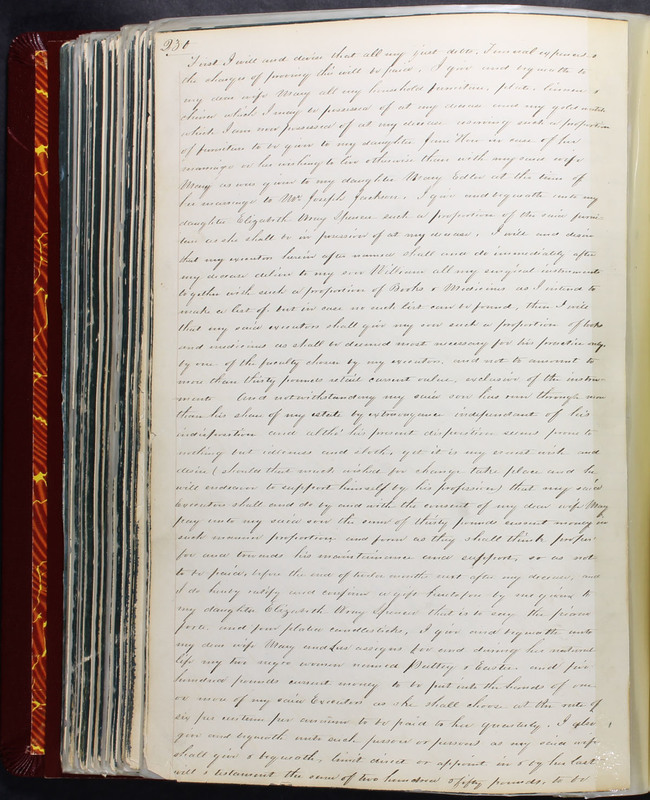 230
First I will and desire that all my just debts, funeral expences &
the charges of proving this will be paid. I give and bequeath to
my dear wife Mary all my household furniture, plate, linnen &
china which I may be possessed of at my decease and my gold watch
which I am now possessed of at my decease such a proportion
of furniture to be given to my daughter in case of her
marriage or her wishing to live otherwise than with my said wife
Mary as was given to my daughter Mary Eddy at the time of
her marriage to Mr. Joseph Jackson. I give and bequeath unto my
daughter Elizabeth Mary Spencer such a proportion of the said furni-
ture as she shall be in possession of at my decease. I will and desire
that my executors herein after named shall and do immediately after
my decease deliver to my son William all my surgical instruments
together with such a proportion of Books & Medicines as I intend to
make a list of, but in case no such list can be found, then I will
that my said executors shall give my son such a proportion of books
and medicines as shall be deemed most necessary for his practice only
by one of the faculty chosen by my executors and not to amount to
more than thirty pounds retail current value, exclusive of the instru-
ments And notwithstanding my said son has run through more
than his share of my estate by extravagance independant of his
indisposition and altho' his present disposition seems prone to
nothing but idleness and sloth, yet it is my wish and
desire (should that much wished for change take place and he
will endeavor to support himself by his profession) that my said
Executors shall and do by and with the consent of my dear wife Mary
pay unto my said son the sum of thirty pounds current money in
such manner proportion and form as they shall think proper
for and towards his maintainance and support, so as not
to be paid before the end of twelve months next after my decease, and
I do hereby ratify and confirm a gift heretofore by me given to
my daughter Elizabeth Mary Spencer that is to say the piano
forte and four plated candlesticks, I give and bequeath unto
my dear wife Mary and her assigns for and during her natural
life my two negro women named and and five
hundred pounds current money to be put into the hands of one
or more of my said Executors as she shall choose at the rate of
six per centum per annum to be paid to her quarterly. I also
give and bequeath unto such person or persons as my said wife
shall give & bequeath, limit direct or appoint in & by her last
will & testament the sum of two hundred & fifty pounds, to be